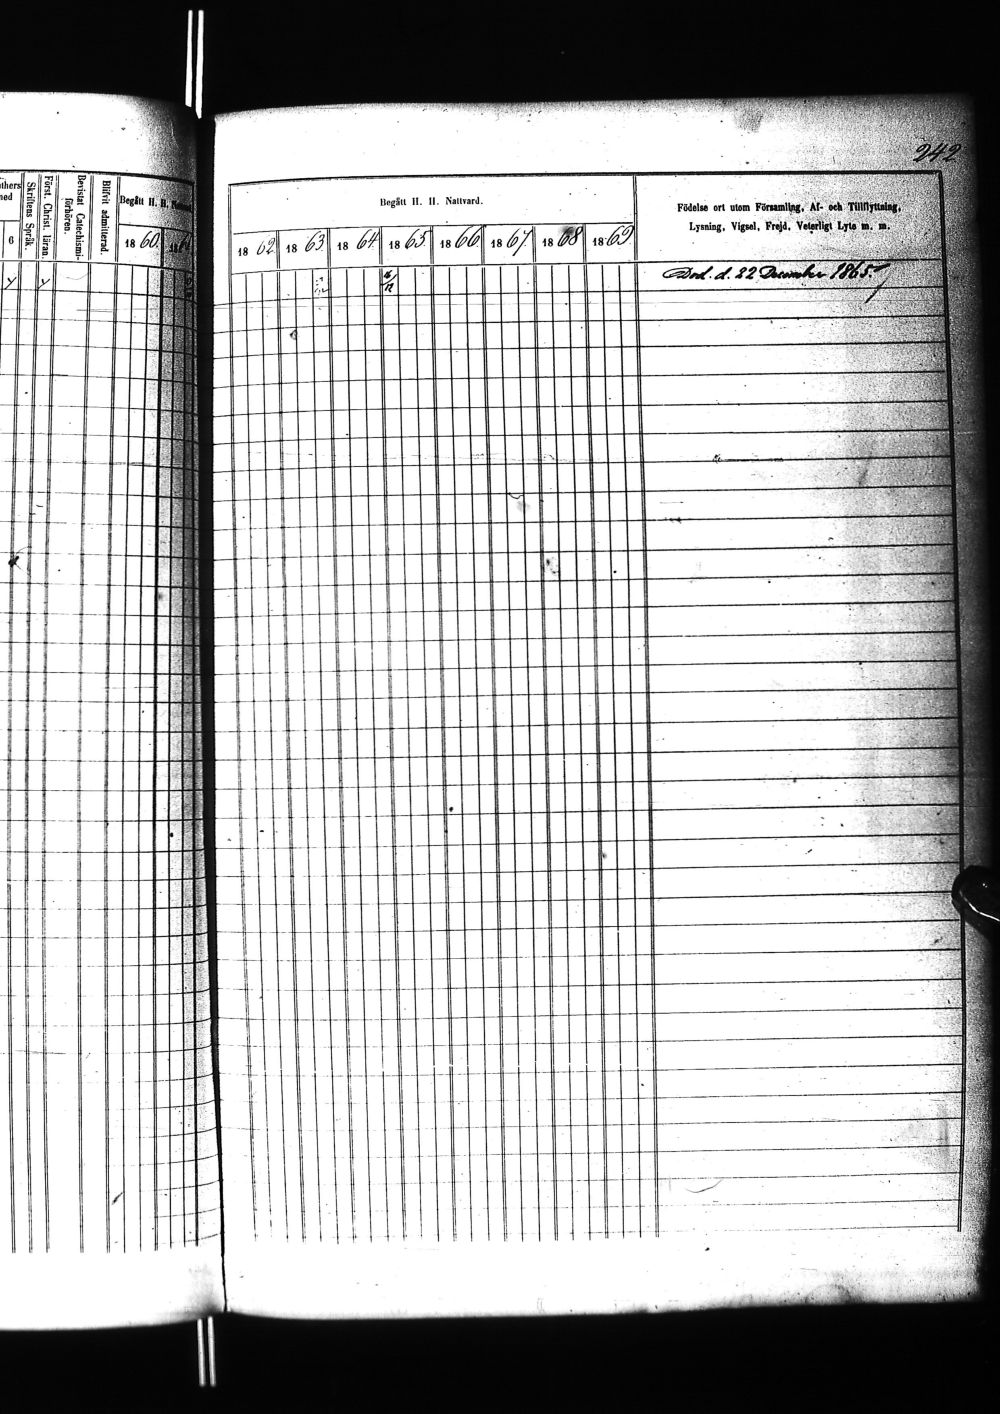 242
thers
ned
6
Skriftens Språk.
Först. Christ. läran.
Bevistat Catechismi-
förhören.
Blifvit admitterad.
Begått H. H.
1860
Begått H. H. Nattvard.
1862 1863 1864 1865 1866 1867 1868 1869
Födelse ort utom Församling, Af- och Tillflyttning,
Lysning, Vigsel, Frejd, Veterligt Lyte m. m.
Död. d. 22 December 1865